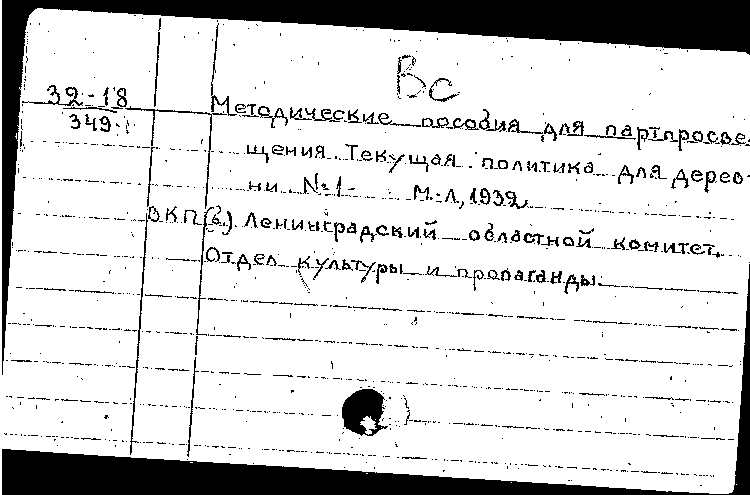 Вс
32-18
349.
Методические пособия для партпросве-
щения Текущая политика для дерев-
ни №1- М.-Л, 1932
ВКП(б). Ленинградский областной комитет.
Отдел культуры и пропаганды.